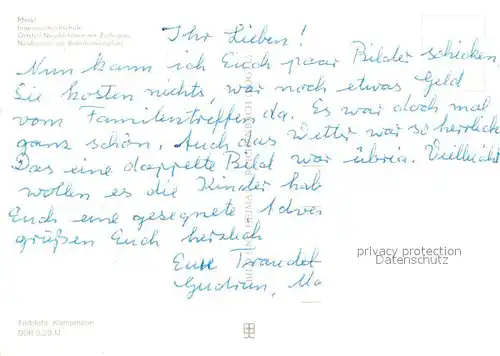 Markt
Ingenieurhochschule
Ortsteil
Neubauten am
Ihr Lieben!
Nun kann ich Euch paar Bilder schicken.
Sie kosten nichts, war noch etwas Geld
vom Familientreffen da. Es war doch mal
ganz schön. Auch das Wetter war so herrlich
Das eine doppelte Bild war übrig. Vielleicht
wollen es die Kinder hab
Euch eine gesegnete Adve
grüßen Euch herzlich
Eure Traudel
Gudrun, Ma
privacy protection
Datenschutz
Farbfoto: Kampmann
DDR 0,20 M